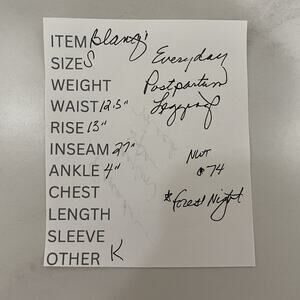 ITEM Blanqi
SIZE S
WEIGHT
WAIST 12.5"
RISE 13"
INSEAM 27"
ANKLE 4"
CHEST
LENGTH
SLEEVE
OTHER K
Everyday
Postpartum
Leggings
NWT
74
*Forest Night